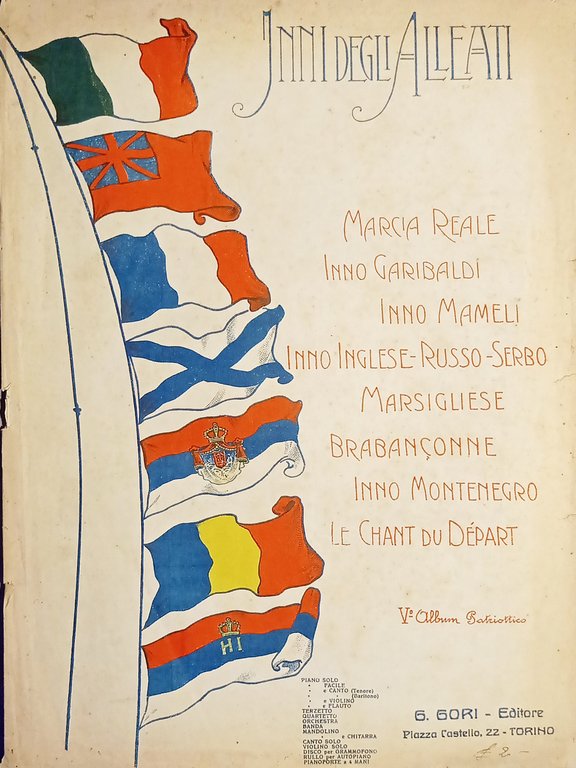 INNI DEGLI ALLEATI
MARCIA REALE
INNO GARIBALDI
INNO MAMELI
INNO INGLESE-RUSSO-SERBO
MARSIGLIESE
BRABANÇONNE
INNO MONTENEGRO
LE CHANT DU DÉPART
Vº Album Patriottico
HI
PIANO SOLO
" FACILE
" e CANTO (Tenore)
" " (Baritono)
" e VIOLINO
" e FLAUTO
TERZETTO
QUARTETTO
ORCHESTRA
BANDA
MANDOLINO
" e CHITARRA
CANTO SOLO
VIOLINO SOLO
DISCO per GRAMMOFONO
RULLO per AUTOPIANO
PIANOFORTE a 4 MANI
G. GORI - Editore
Piazza Castello, 22 - TORINO
£ 2 -